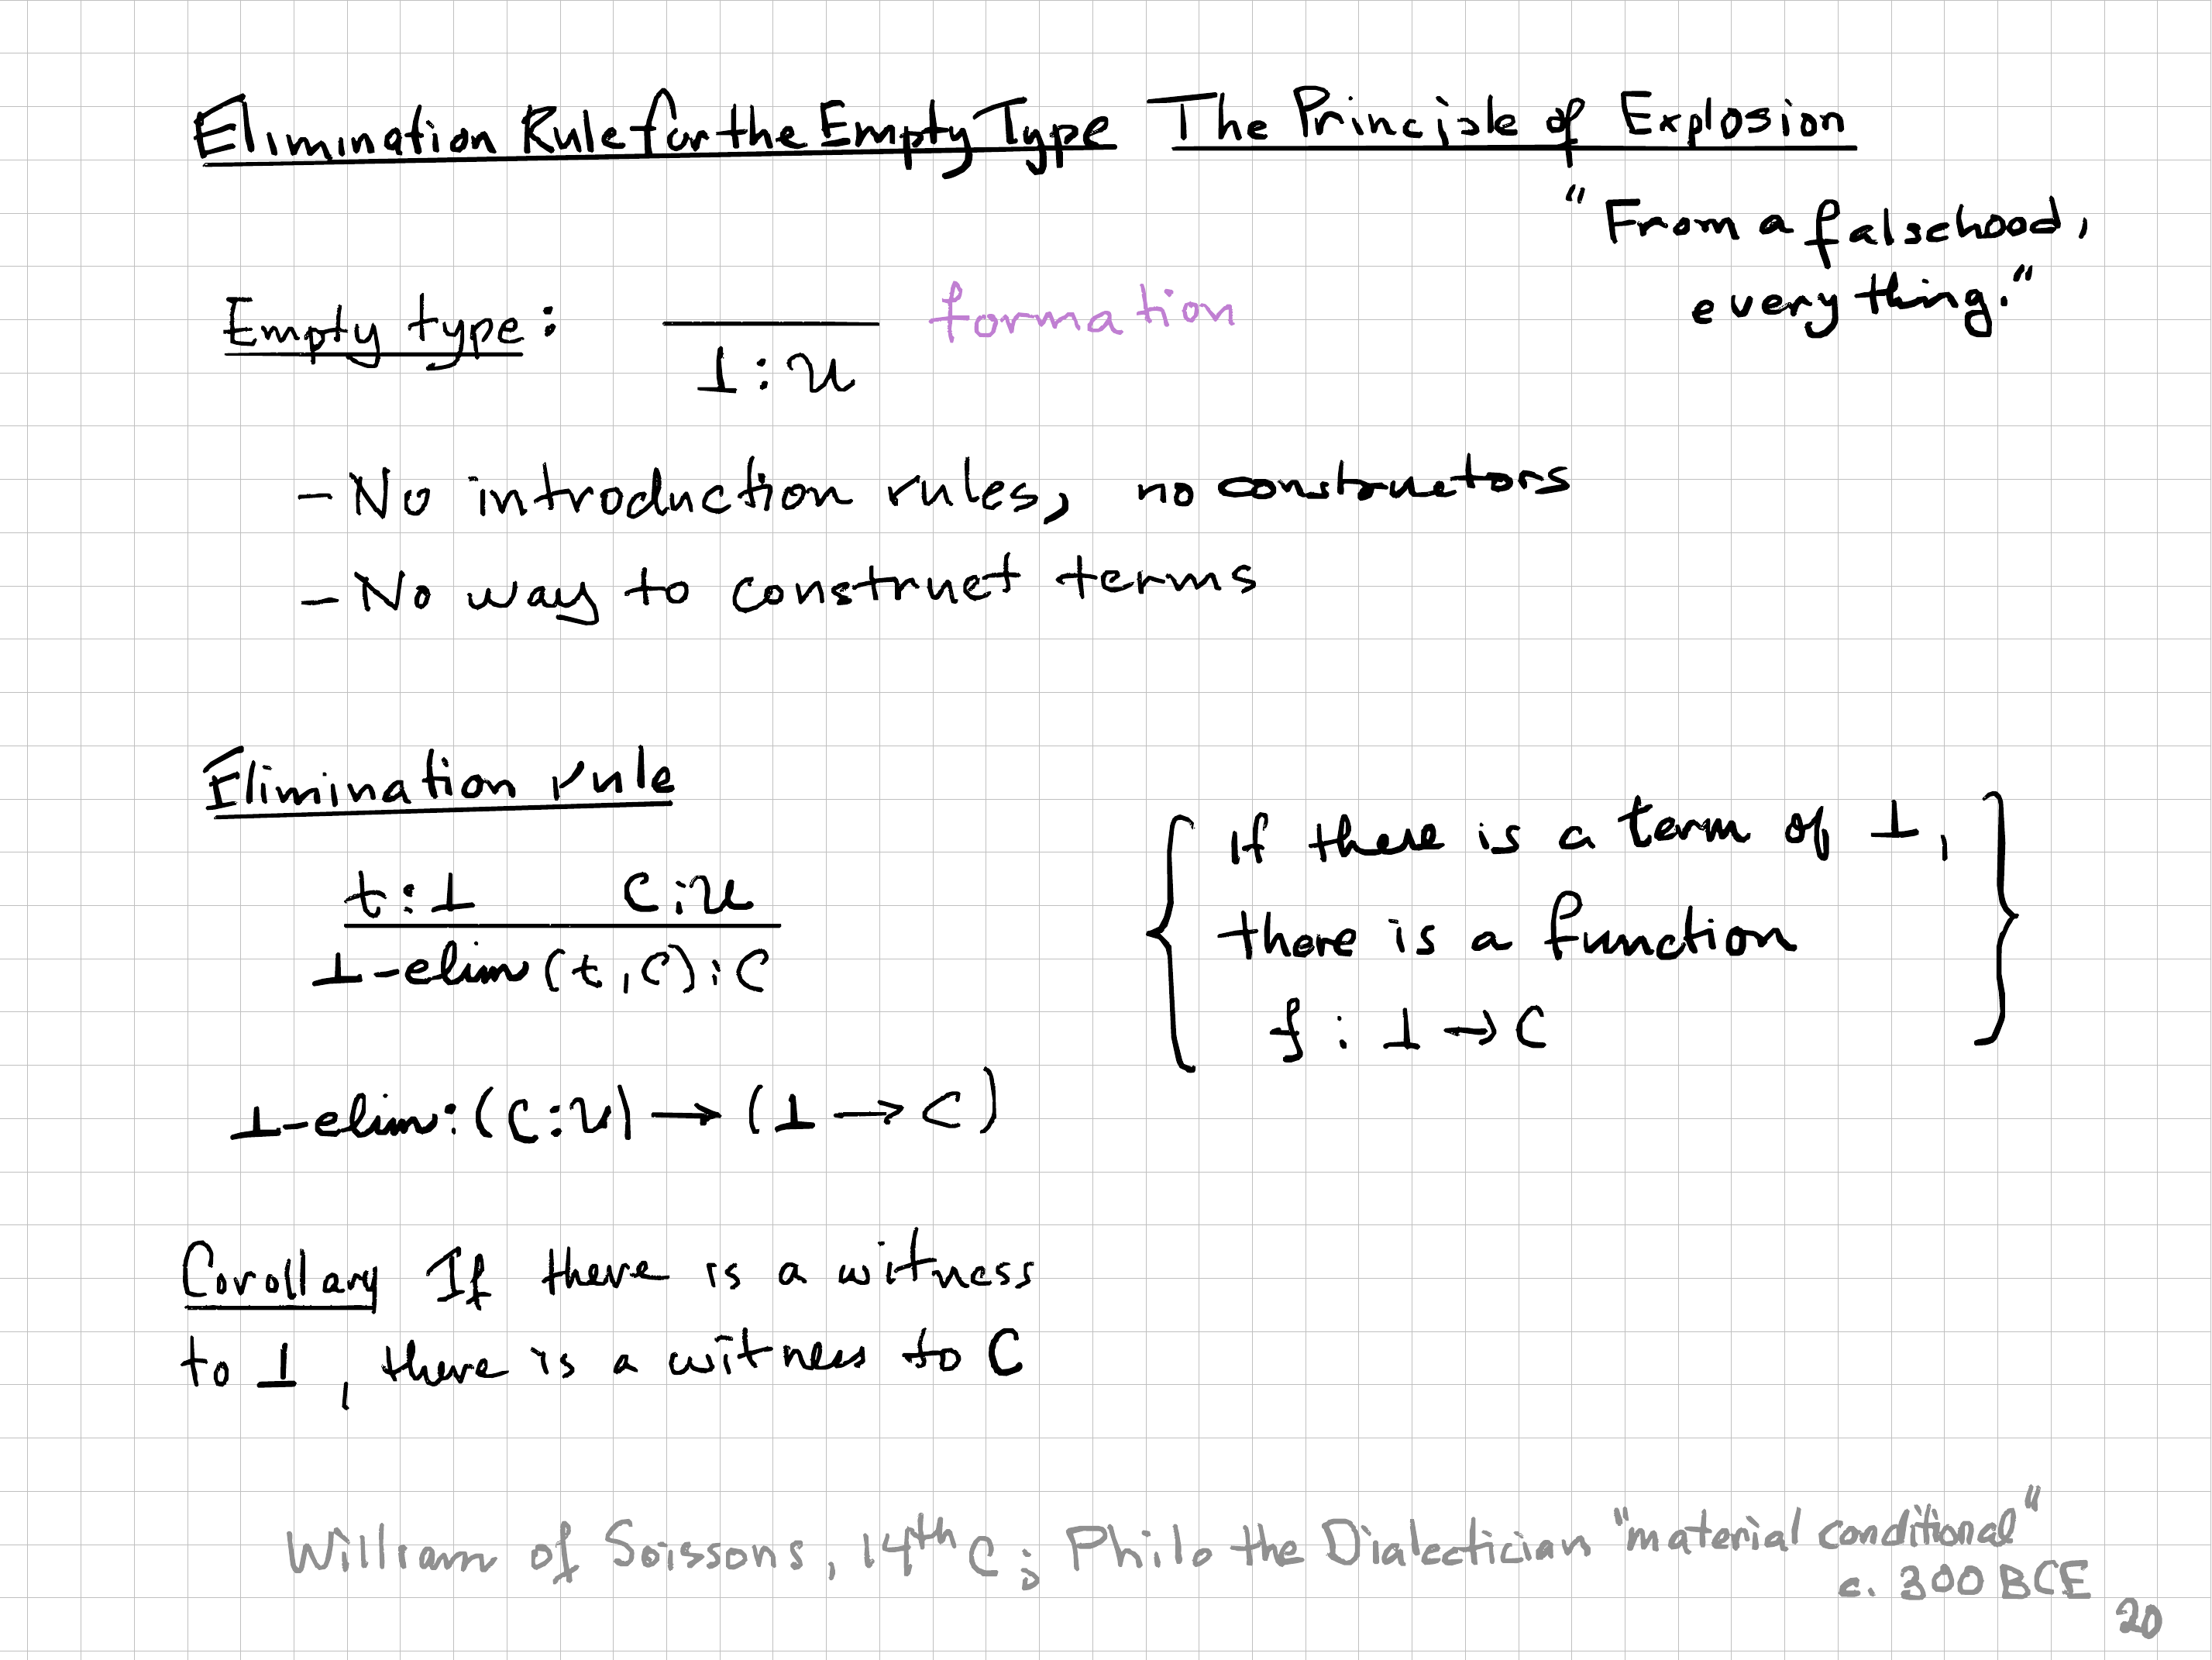 Elimination Rule for the Empty Type The Principle of Explosion
"From a falsehood,
everything."
Empty type: formation
⊥ : 𝒰
- No introduction rules, no constructors
- No way to construct terms
Elimination rule
t : ⊥ C : 𝒰
⊥-elim (t, C) : C
⊥-elim : (C : 𝒰) → (⊥ → C)
If there is a term of ⊥,
there is a function
f : ⊥ → C
Corollary If there is a witness
to ⊥, there is a witness to C
William of Soissons, 14th C; Philo the Dialectician "material conditional"
c. 300 BCE
20